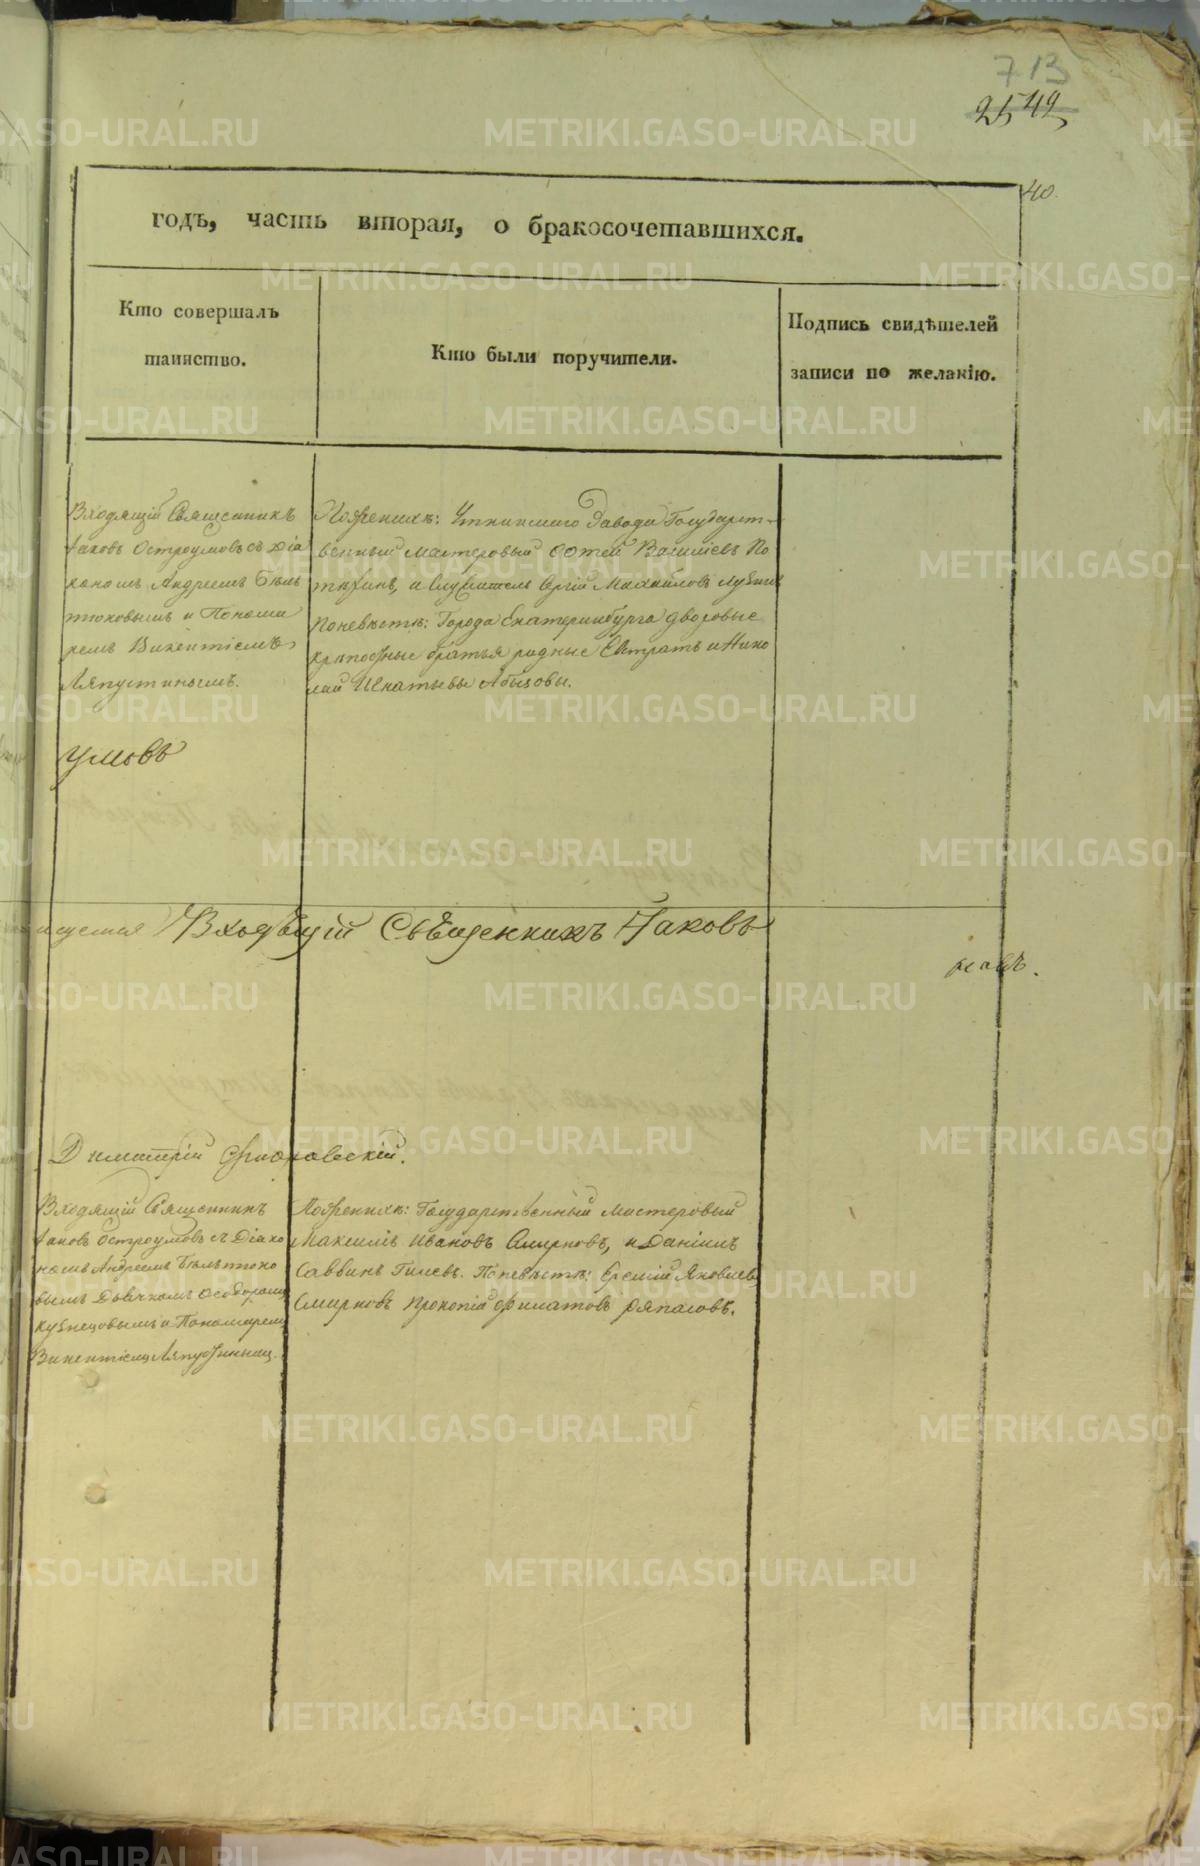 713
2542
40.
годъ, часть вторая, о бракосочетавшихся.
Кто совершалъ
таинство.
Кто были поручители.
Подпись свидѣтелей
записи по желанію.
Входящій Священникъ
Іаковъ Остроумовъ съ Діа
кономъ Андреемъ Бѣль
тюковымъ и Понома
ремъ Викентіемъ
Ляпустинымъ.
Пожених: Уткинскаго Завода Государст-
венный мастеровый Фотей Васильевъ По
и Служитель Сергій Михайловъ
Поневѣстѣ: Города Екатеринбурга дворовые
братья родные Евтратъ и Нико
лай Игнатьевы Абызовы.
умовъ
Входящій Священникъ Іаковъ
ковъ.
Димитрій
Входящій Священникъ
Іаковъ Остроумовъ съ Діако
номъ Андреемъ Бѣльтюко
вымъ Дьячкомъ Феодоромъ
Кузнецовымъ и Пономаремъ
Викентіемъ Ляпустинымъ.
Пожених: Государственный мастеровый
Максимъ Ивановъ Смирновъ, и Даніилъ
Саввинъ Гилевъ. Поневѣстѣ: Еремій Яковлевъ
Смирновъ Прокопій Филатовъ Ряпасовъ.
METRIKI.GASO-URAL.RU